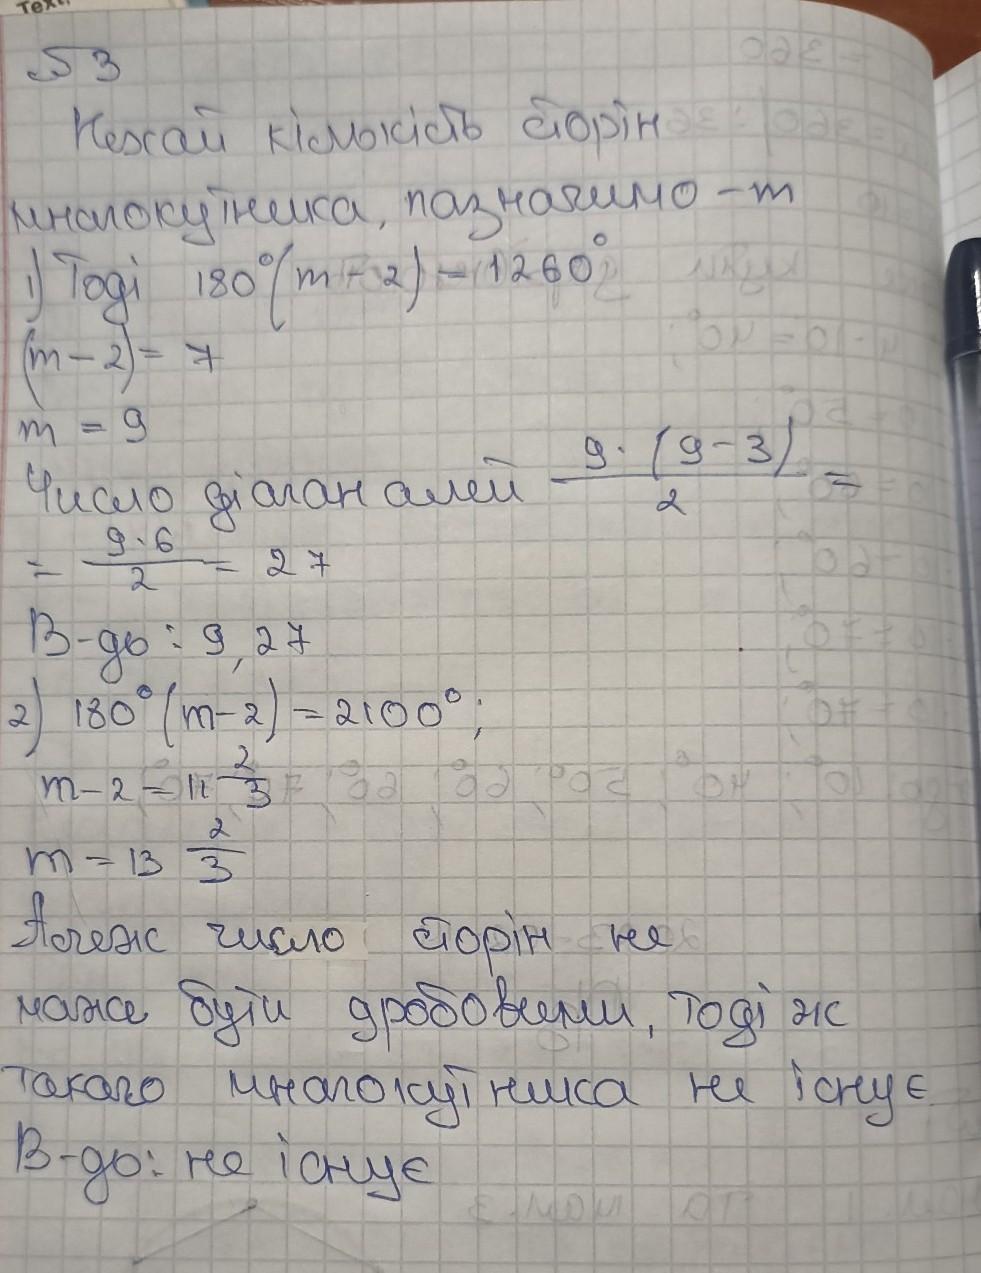 Тех
№3
Нехай кількість сторін
многокутника, позначимо - m
1) Тоді 180°(m - 2) = 1260°
(m - 2) = 7
m = 9
Число діагоналей 9·(9-3)/2 =
= 9·6/2 = 27
В-дь: 9, 27
2) 180°(m-2) = 2100°;
m - 2 = 11 2/3
m = 13 2/3
число сторін не
може бути дробовим, тоді ж
такого многокутника не існує
В-дь: не існує